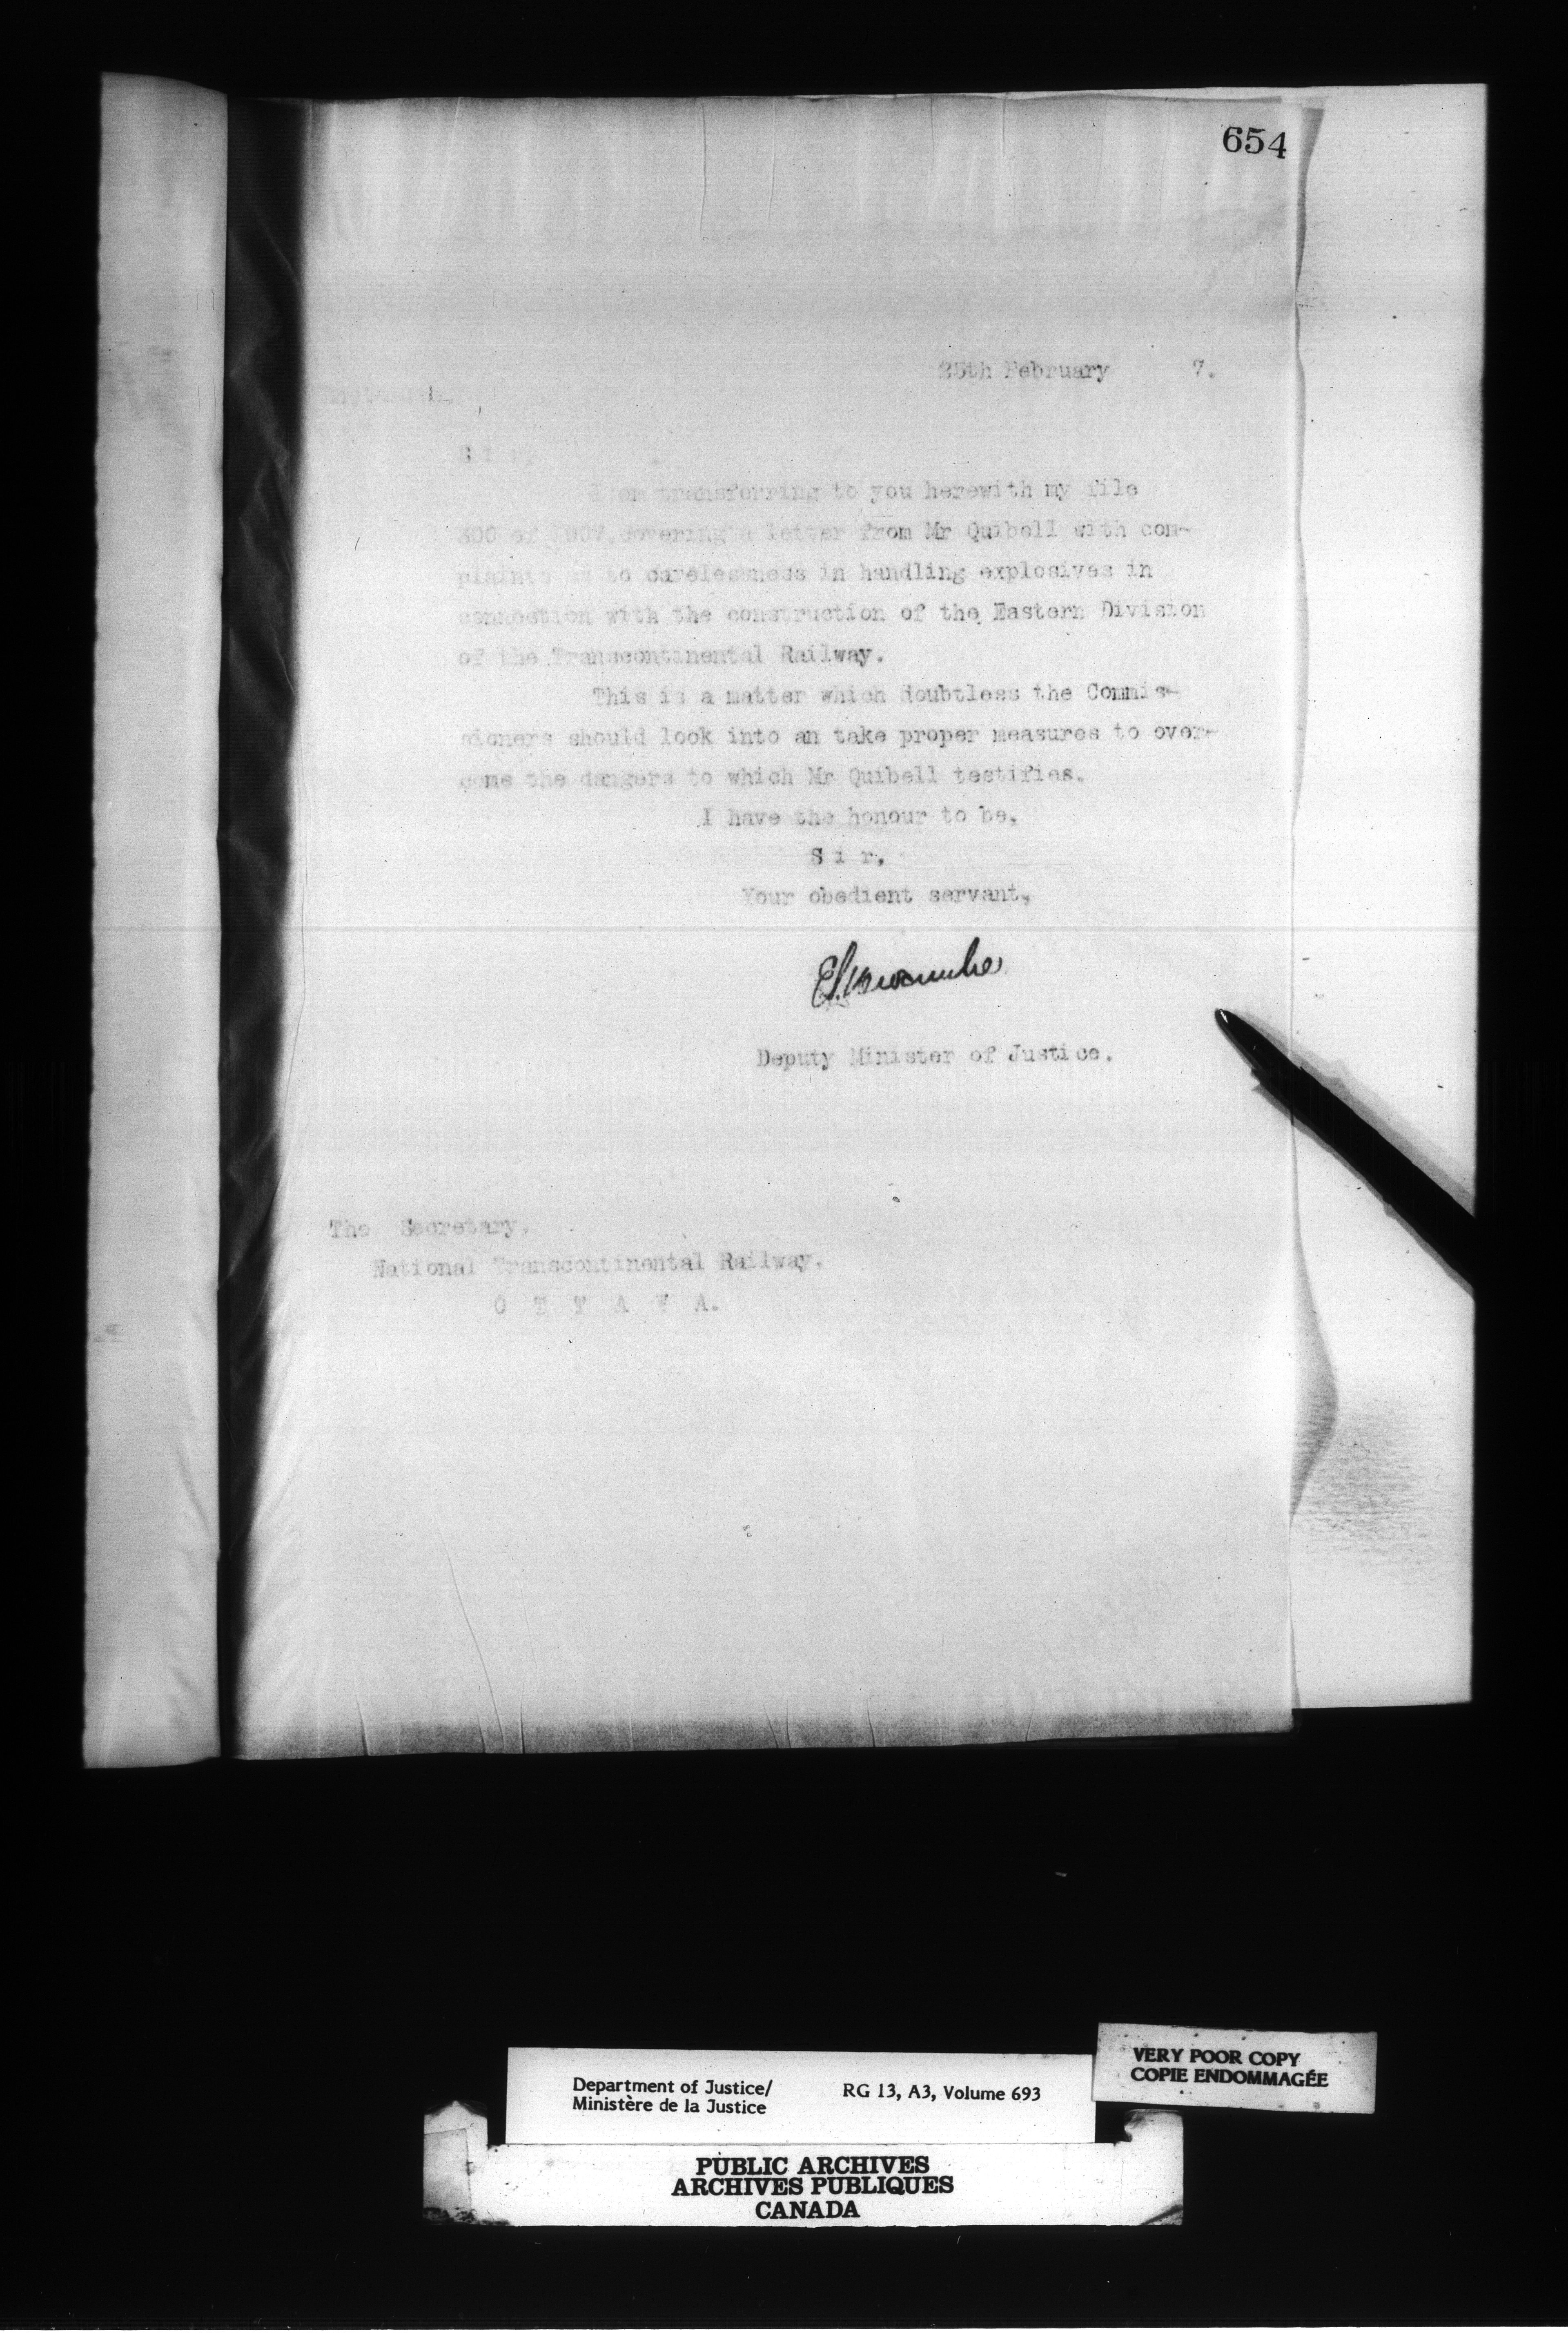 654
25th February 7.
Sir,
I am transferring to you herewith my file
300 of 1907, covering a letter from Mr Quibell with com-
plaints as to carelessness in handling explosives in
connection with the construction of the Eastern Division
of the Transcontinental Railway.
This is a matter which doubtless the Commis-
sioners should look into an take proper measures to over-
come the dangers to which Mr Quibell testifies.
I have the honour to be,
Sir,
Your obedient servant,
E.L. Newcombe
Deputy Minister of Justice.
The Secretary,
National Transcontinental Railway,
O T T A W A.
VERY POOR COPY
COPIE ENDOMMAGÉE
Department of Justice/ RG 13, A3, Volume 693
Ministère de la Justice
PUBLIC ARCHIVES
ARCHIVES PUBLIQUES
CANADA